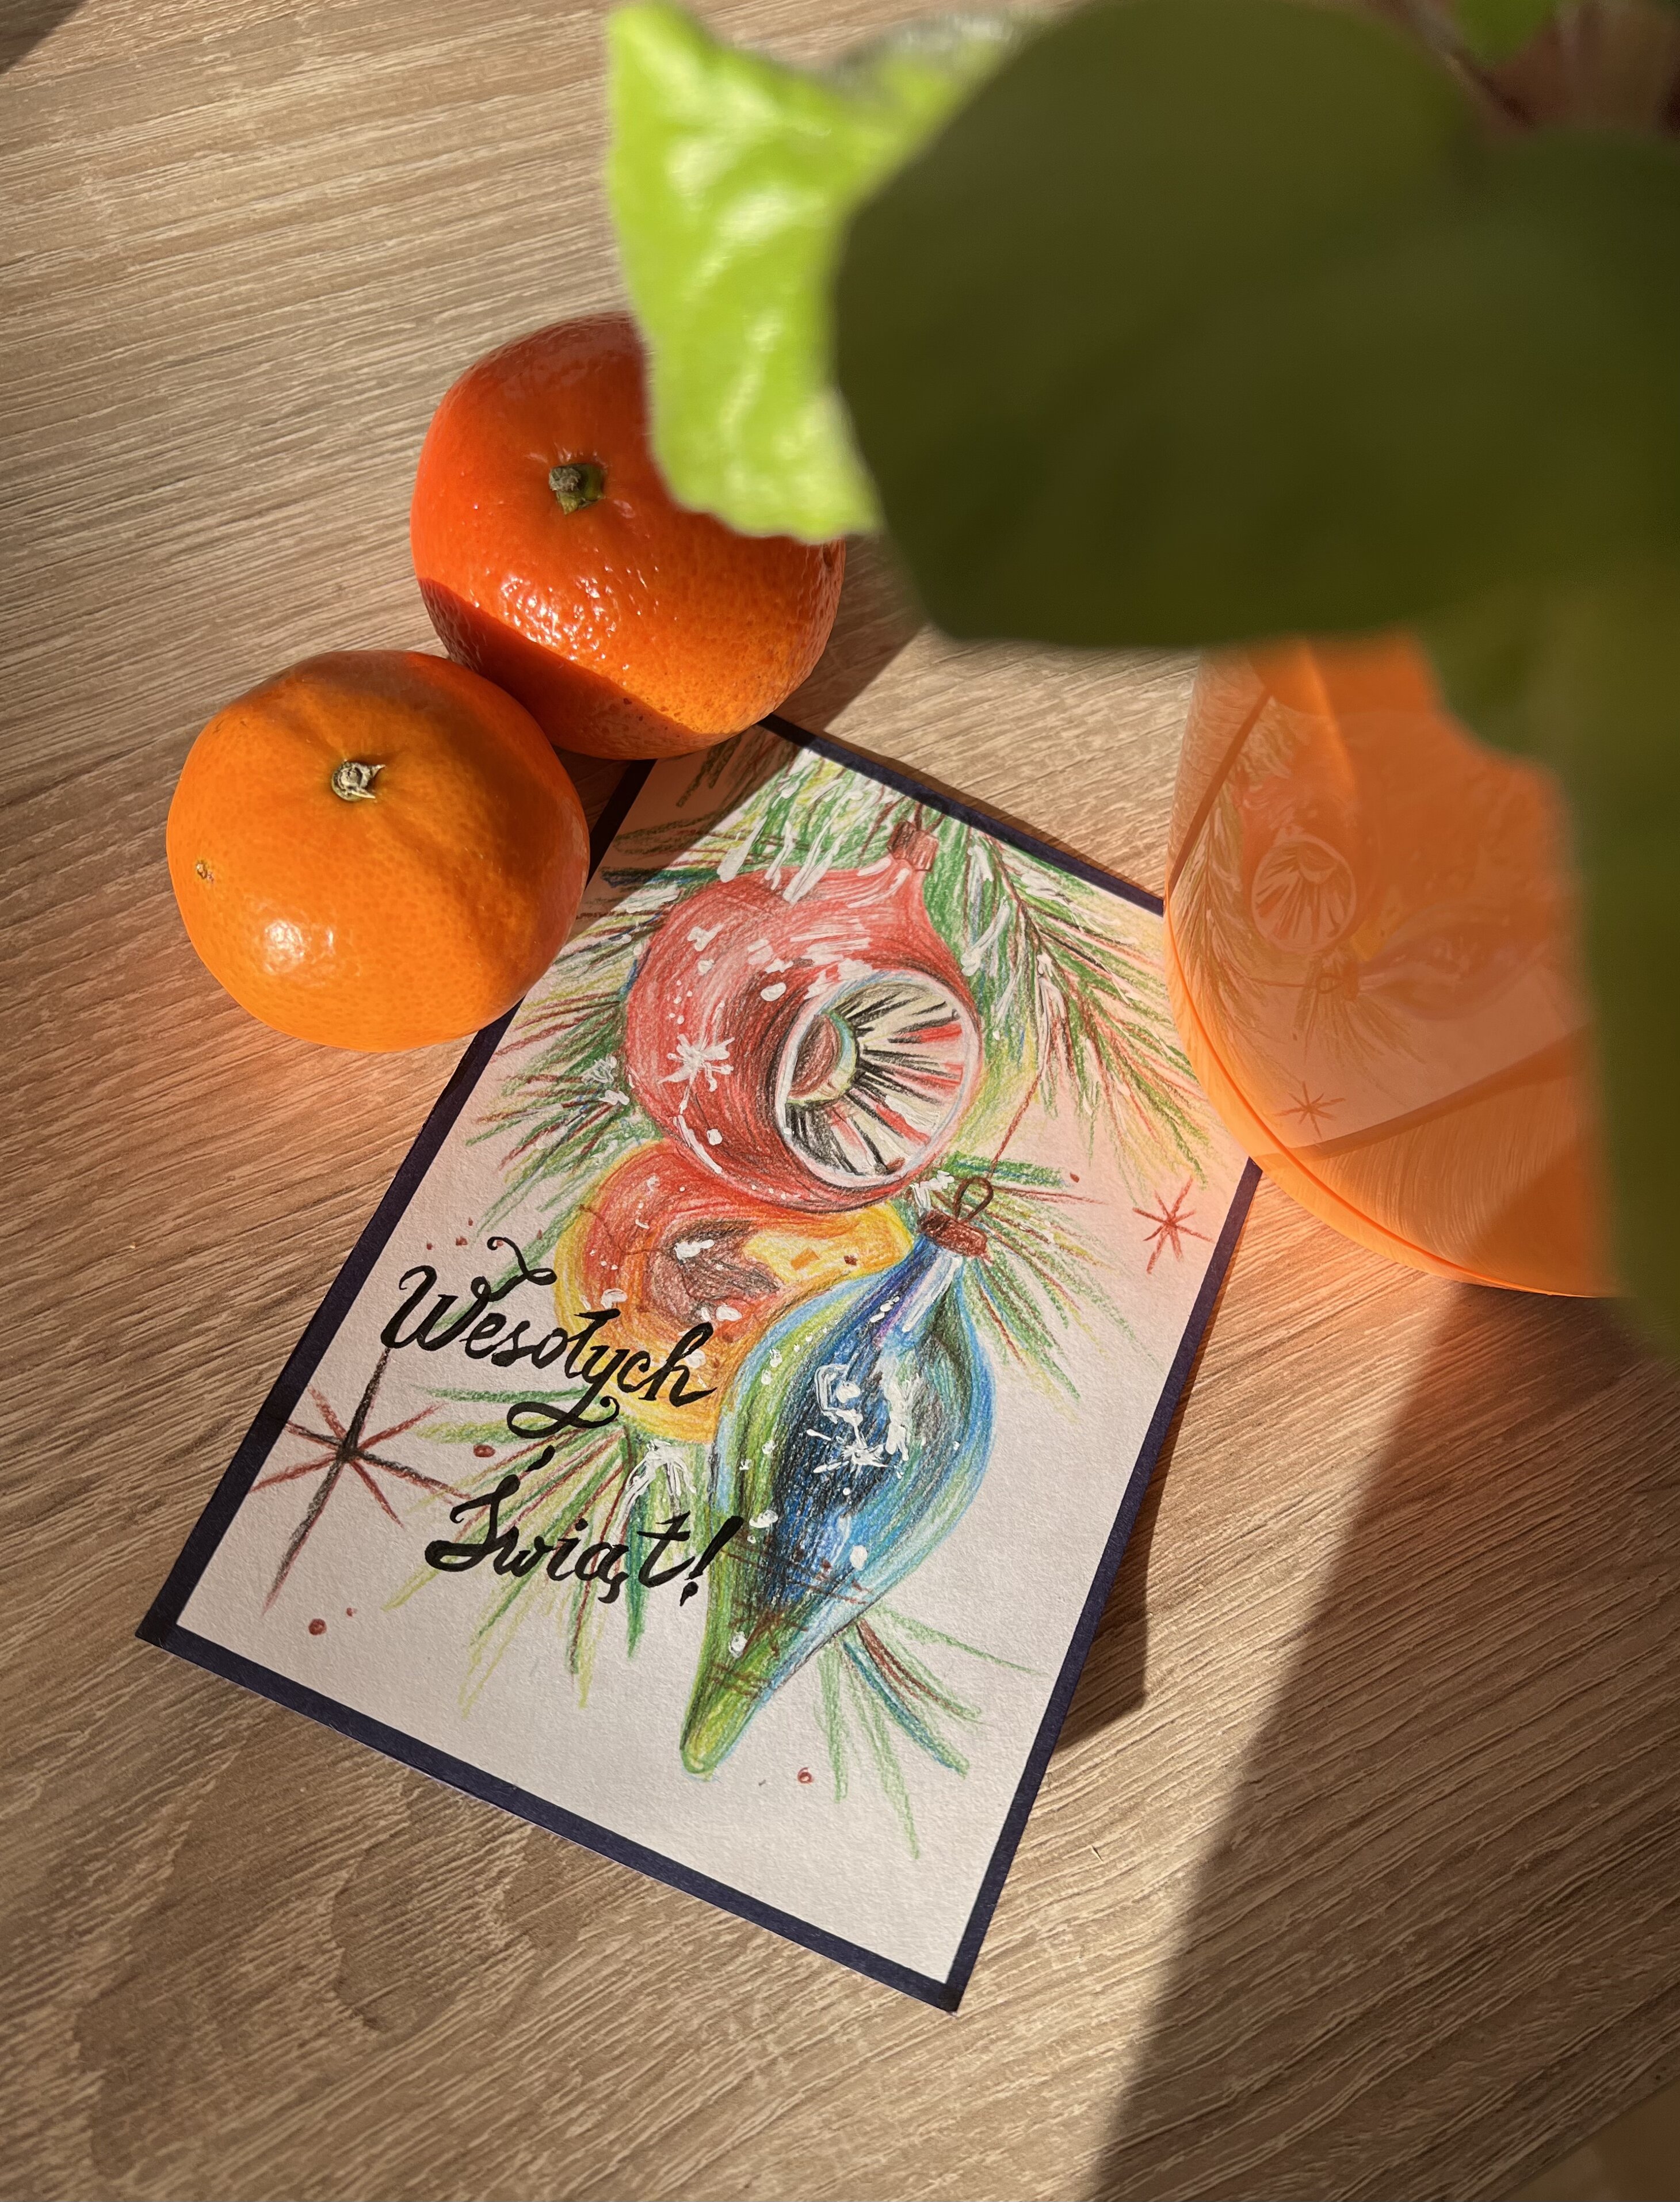 Wesołych
Świąt!